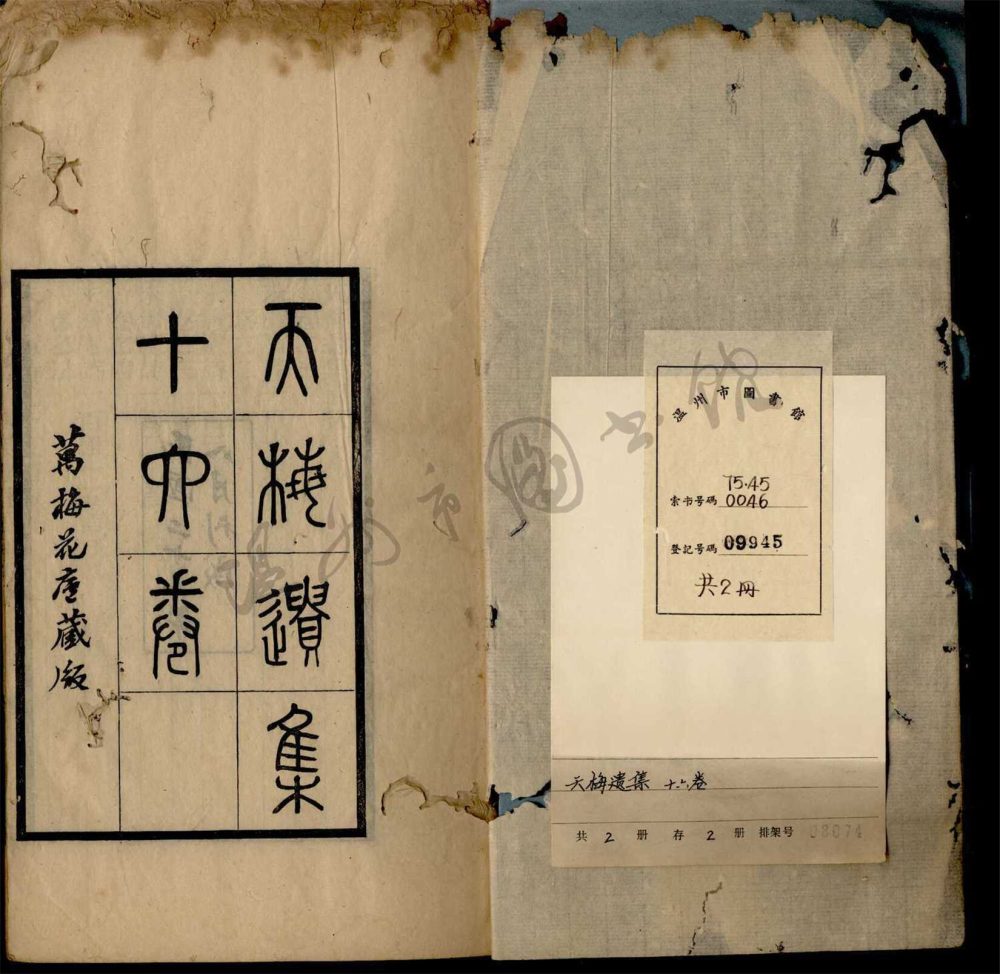 溫州市圖書館
75·45
索书号碼 0046
登記号碼 09945
共2冊
天梅遺集 十六卷
共 2 册 存 2 册 排架号 08074
天梅遺集
十六卷
萬梅花廬藏版
温州市圖书馆